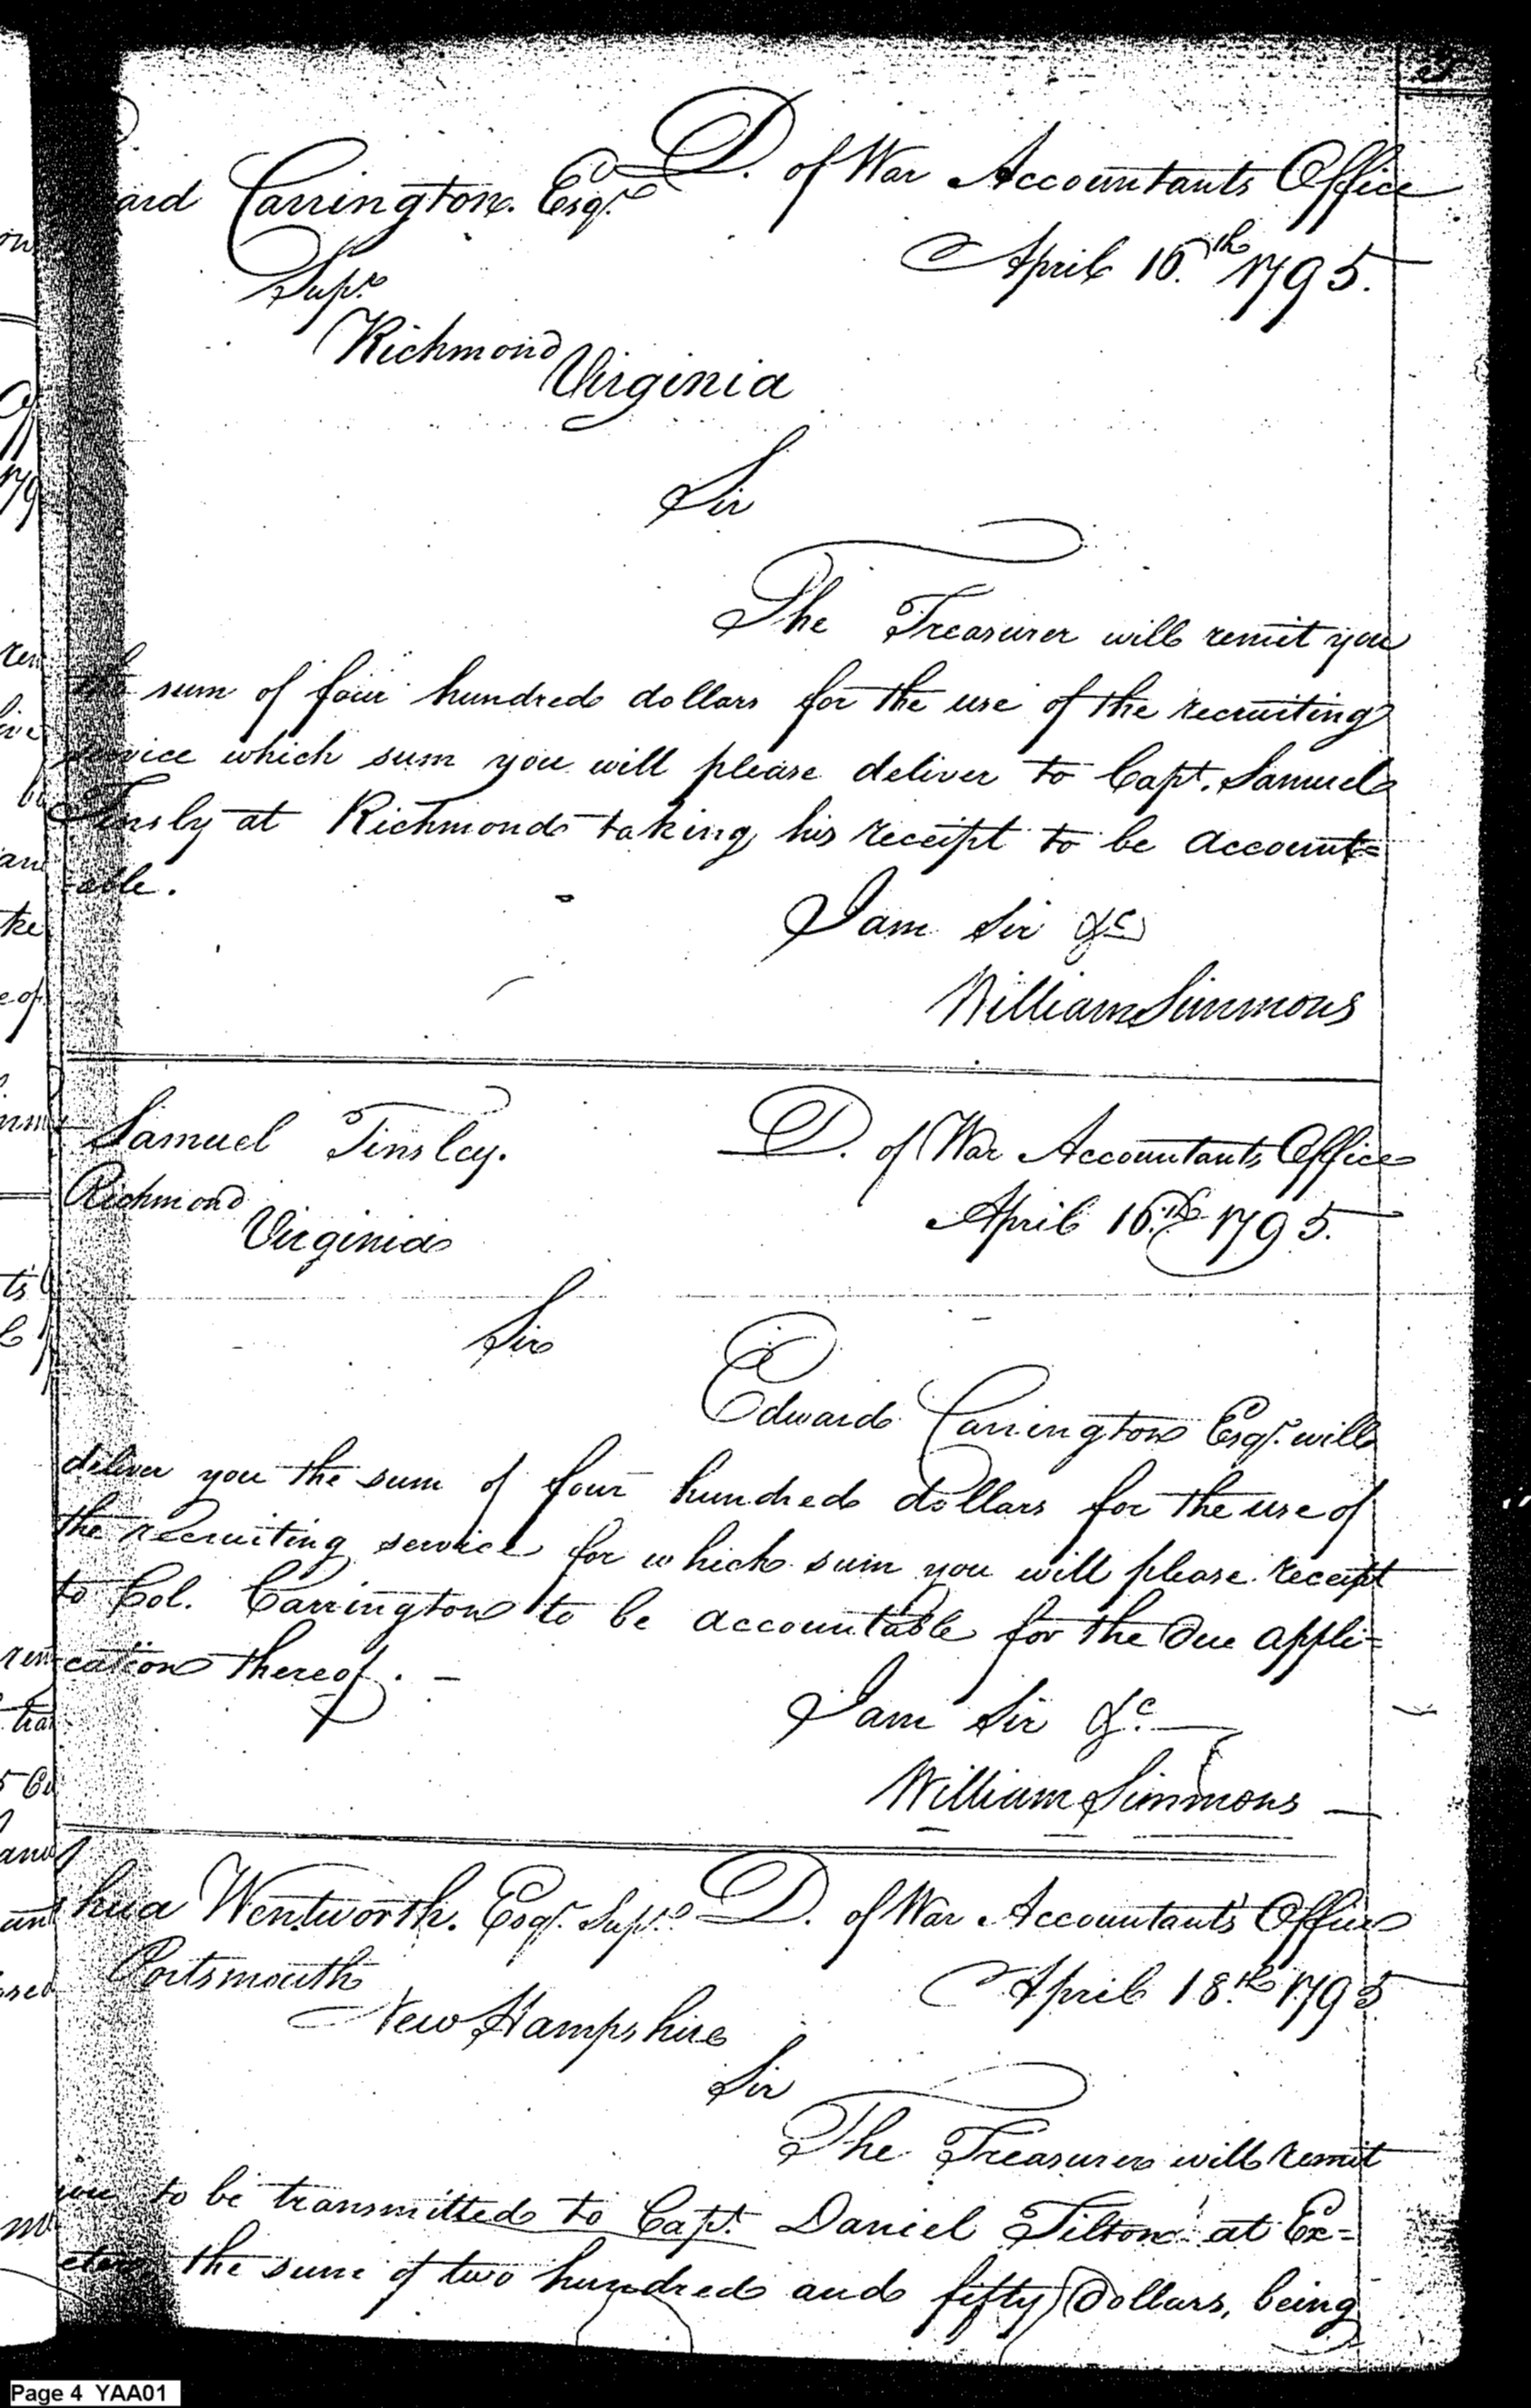 ard Carrington. Esqr. D. of War Accountants Office
Supr.
April 16.th 1795.
Richmond
Virginia
Sir
The Treasurer will remit you
the sum of four hundred dollars for the use of the recruiting
service which sum you will please deliver to Capt. Samuel
Tinsly at Richmond taking his receipt to be account=
=able.
I am Sir &c
William Simmons
Samuel Tinsley. D. of War Accountants Office
Richmond
Virginia
April 16.th 1795.
Sir
Edward Carrington Esqr. will
deliver you the sum of four hundred dollars for the use of
the recruiting service for which sum you will please receipt
to Col. Carrington to be accountable for the due appli=
cation thereof. -
I am Sir &c.
William Simmons
hua Wentworth. Esqr. Supr. D. of War Accountant's Office
Portsmouth
New Hampshire
April 18.th 1795
Sir
The Treasurer will remit
you to be transmitted to Capt. Daniel Tilton at Ex=
eter, the sum of two hundred and fifty Dollars, being
Page 4 YAA01